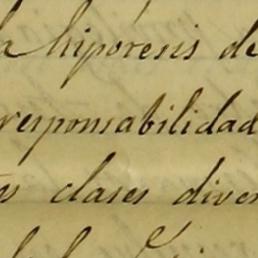 la hipótesis de
responsabilidad
clases diver